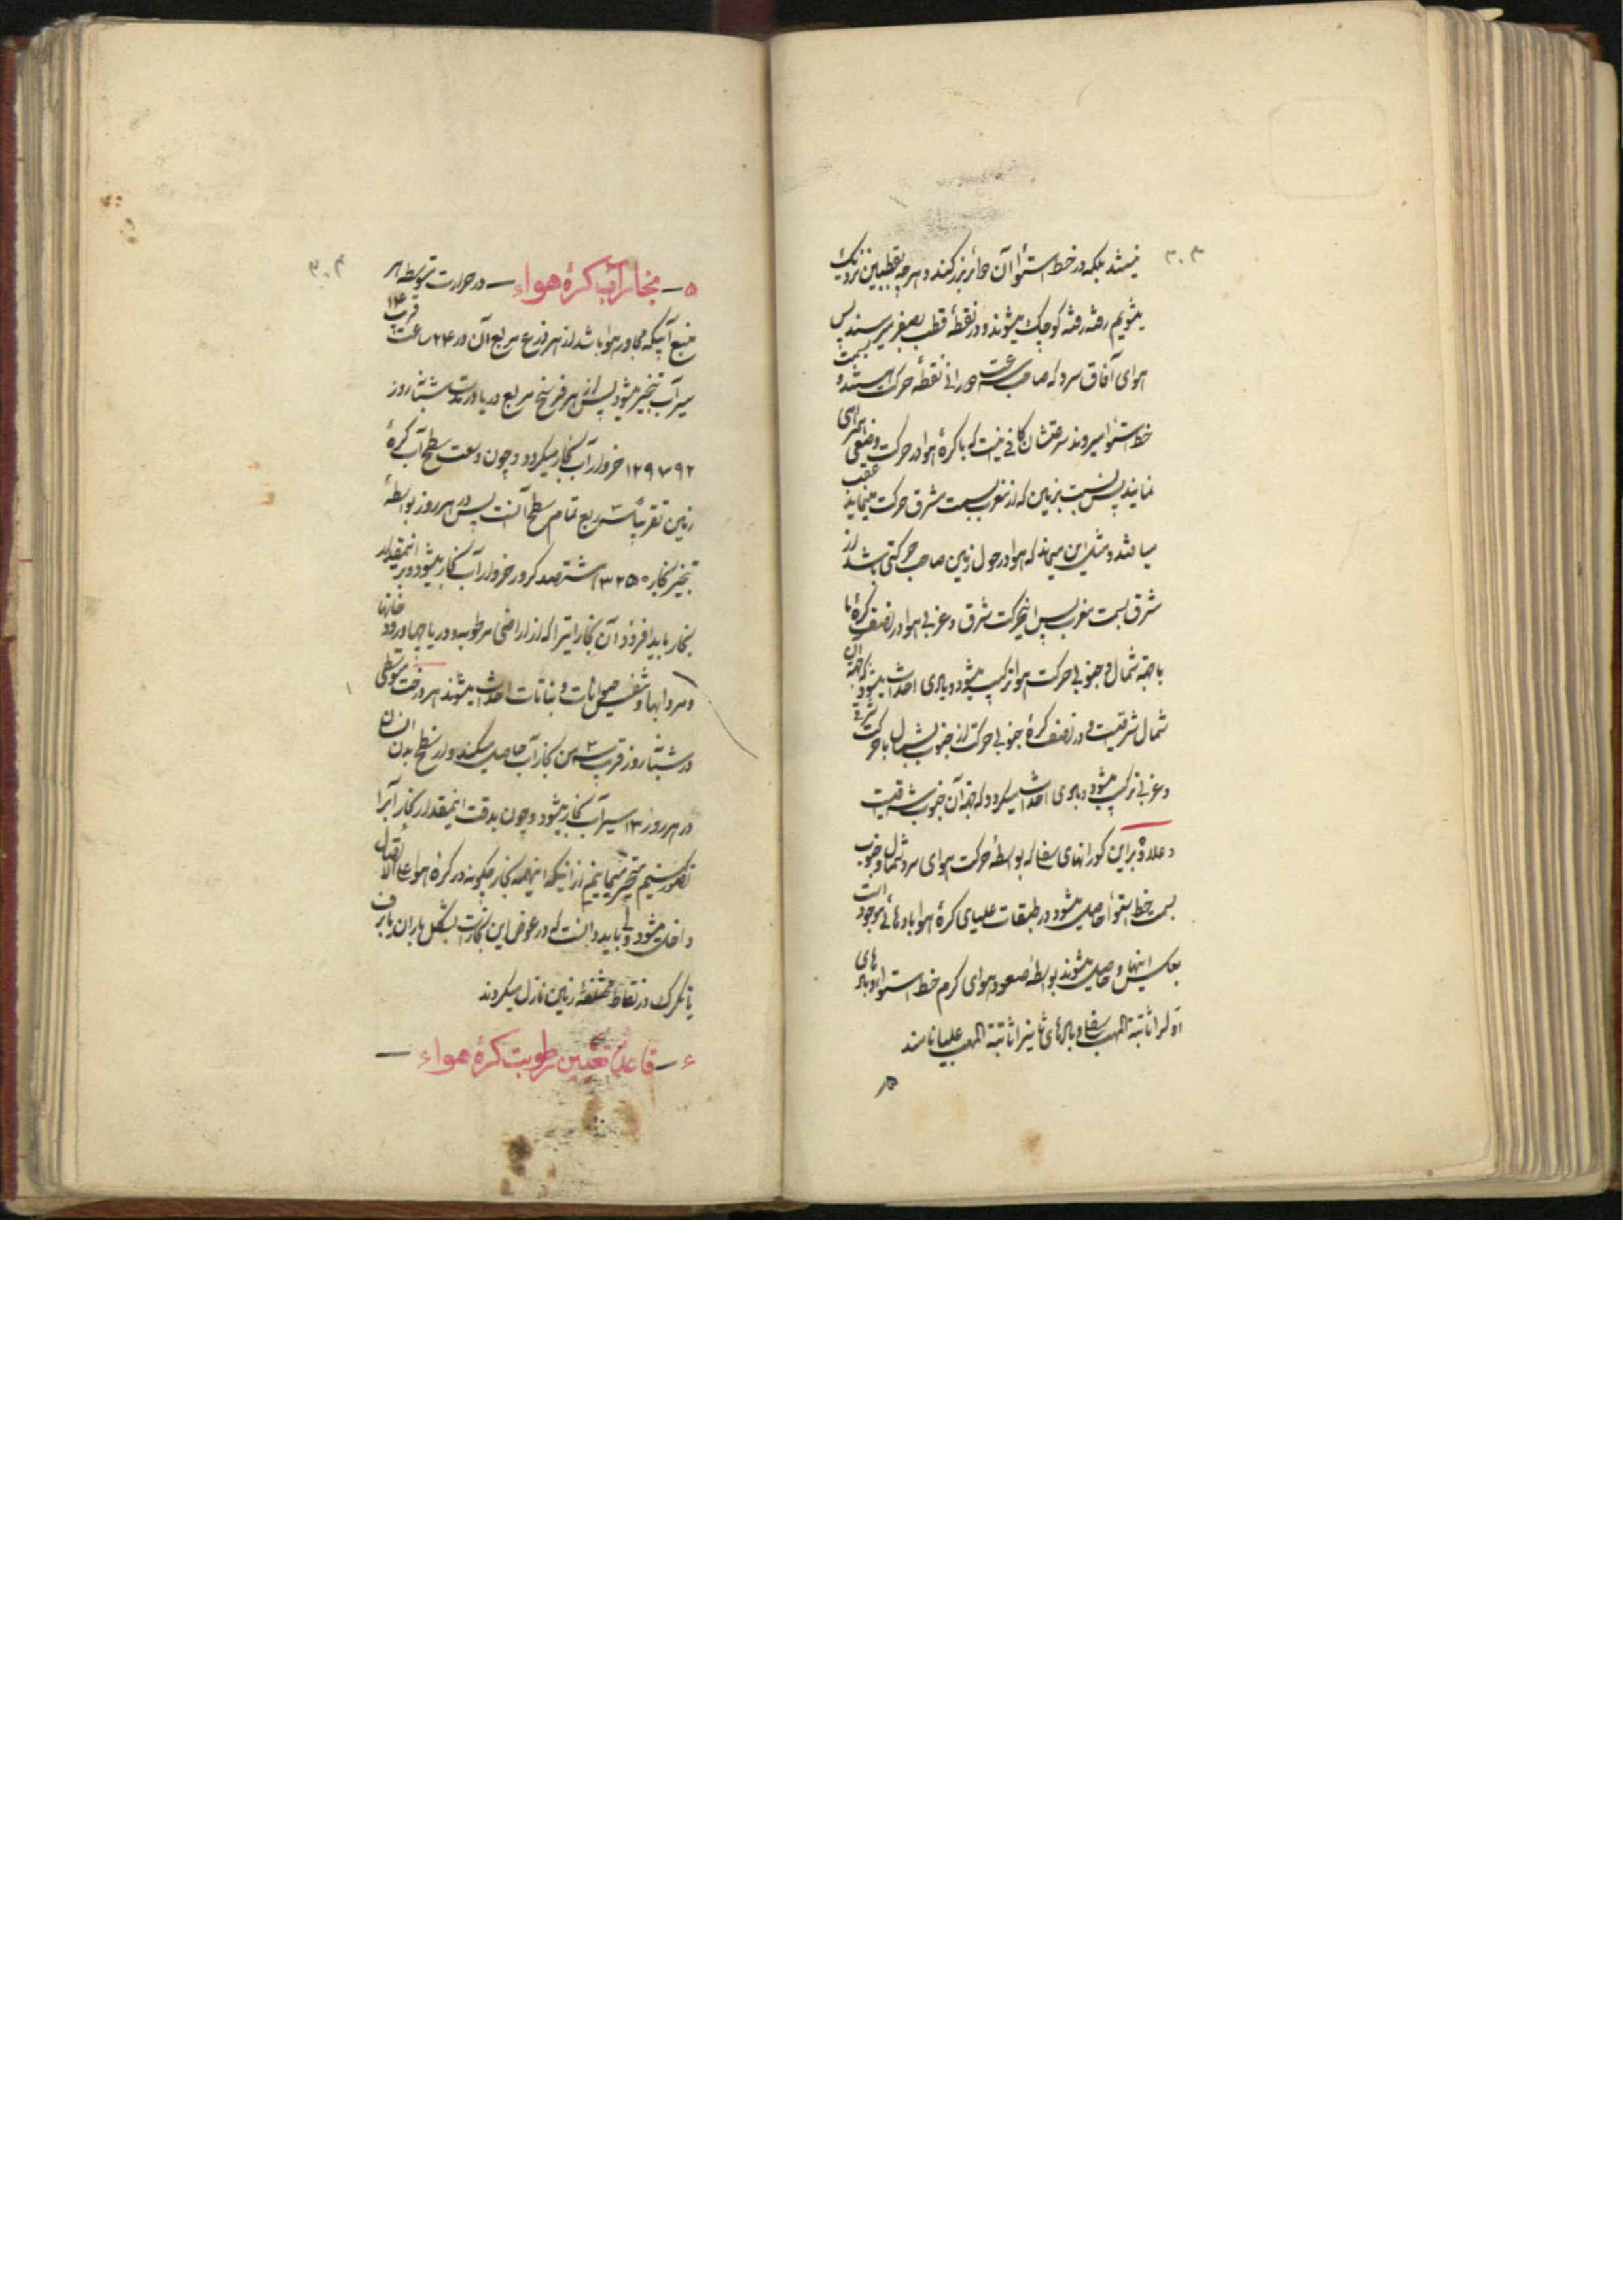 ۳۰۳
نیستند بلکه در خط استوا آن دوائر بزرگند و هرچه بقطبین نزدیک
بشویم رفته رفته کوچک میشوند و در نقطهٔ قطب بصفر میرسند پس
هوای آفاق سرد که صاحب سرعت دورانی نقطه حرکت هستند و بسمت
خط استوا میروند سرعتشان کافی نیست که با کرهٔ هوا در حرکت وضعی همراهی
نمایند پس نسبت بزمین که از مغرب بسمت مشرق حرکت مینماید عقب
میافتند و مثل این میماند که هوا در حول زمین صاحب حرکتی باشد از
شرق بسمت مغرب پس این حرکت شرق و غربی هوا در نصف کرهٔ ما
با جهة شمال و جنوبی حرکت هوا ترکیب میشود و بادی احداث میشود که جهة آن
شمال شرقیست و در نصف کرهٔ جنوبی حرکت از جنوب بشمال با حرکت شرقی
و غربی ترکیب میشود و بادی احداث میگردد که جهة آن جنوب شرقیست
و علاوه براین کورانهای سفلا که بواسطهٔ حرکت هوای سرد شمال و جنوب
بسمت خط استوا حاصل میشود در طبقات علیای کرهٔ هوا بادهائی موجود است
بعکس اینها و حاصل میشوند بواسطهٔ صعود هوای گرم خط استوا و بادهای
اوّل را ثابتة المهب سفلا و بادهای ثانی را ثابتة المهب علیا نامند
۳۰۴
۵ – بخار آب کرهٔ هواء – در حرارت متوسطه هر
منبع آبیکه مجاور هوا باشد از هر ذرع مربع آن در ۲۴ ساعت قریب
سیر آب تبخیر میشود پس از هر فرسخ مربع دریا در مدت شبانه روز
۱۲۹۷۹۲ خروار آب بخار میگردد و چون وسعت سطح آب کرهٔ
زمین تقریباً سه ربع تمام سطح آنست پس در هر روز بواسطهٔ
تبخیر بخار ۳۲۵۰ ششصد کرور خروار آب بخار میشود و بر اینمقدار
بخار باید افزود آن بخاراتیرا که از اراضی مرطوبه و دریاچها و رودخانها
و مردابها و تنفس حیوانات و نباتات احداث میشوند هر درخت متوسطی
در شبانه روز قریب سه من بخار آب حاصل میکند و از سطح بدن انسان
در هر روز ۱۳ سیر آب بخار میشود و چون بدقت اینمقدار بخار آبرا
تصور کنیم متحیر میمانیم از اینکه اینهمه بخار چگونه در کرهٔ هوا علی الاتصال
داخل میشود ولی باید دانست که در عوض این بخارات بشکل باران یا برف
یا تگرگ در نقاط مختلفهٔ زمین نازل میگردند
۶ – قاعدهٔ تعیین رطوبت کرهٔ هواء –